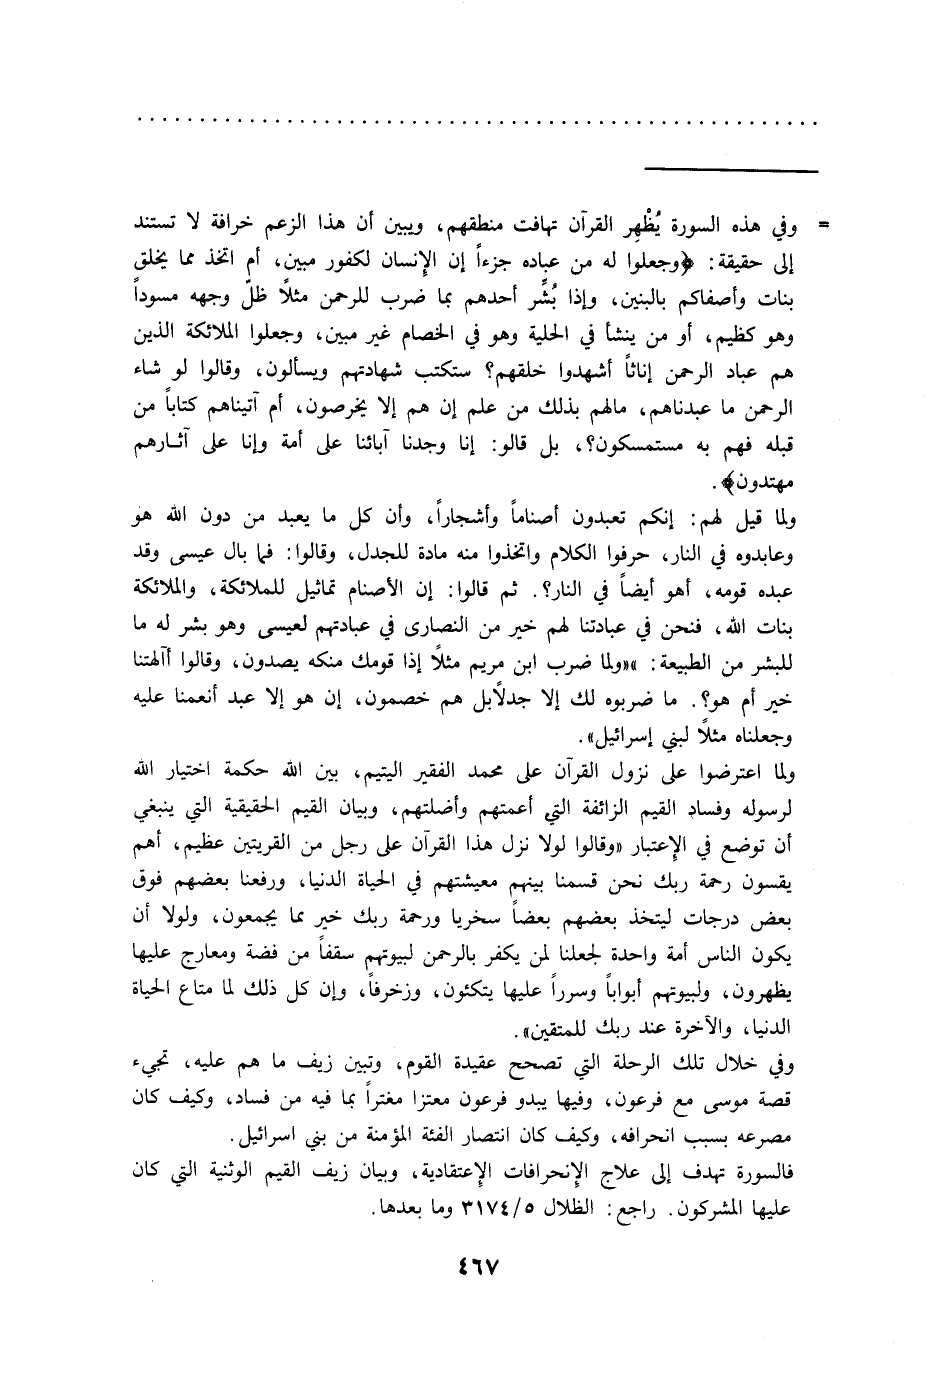 = وفي هذه السورة يُظْهِر القرآن تهافت منطقهم، ويبين أن هذا الزعم خرافة لا تستند
إلى حقيقة: ﴿وجعلوا له من عباده جزءاً إن الإِنسان لكفور مبين، أم اتخذ مما يخلق
بنات وأصفاكم بالبنين، وإذا بُشِّر أحدهم بما ضرب للرحمن مثلًا ظلّ وجهه مسوداً
وهو كظيم، أو من ينشأ في الحلية وهو في الخصام غير مبين، وجعلوا الملائكة الذين
هم عباد الرحمن إناثاً أشهدوا خلقهم؟ ستكتب شهادتهم ويسألون، وقالوا لو شاء
الرحمن ما عبدناهم، مالهم بذلك من علم إن هم إلا يخرصون، أم آتيناهم كتاباً من
قبله فهم به مستمسكون؟، بل قالو: إنا وجدنا آبائنا على أمة وإنا على آثـارهم
مهتدون﴾.
ولما قيل لهم: إنكم تعبدون أصناماً وأشجاراً، وأن كل ما يعبد من دون الله هو
وعابدوه في النار، حرفوا الكلام واتخذوا منه مادة للجدل، وقالوا: فما بال عيسى وقد
عبده قومه، أهو أيضاً في النار؟. ثم قالوا: إن الأصنام تماثيل للملائكة، والملائكة
بنات الله، فنحن في عبادتنا لهم خير من النصارى في عبادتهم لعيسى وهو بشر له ما
للبشر من الطبيعة: »«ولما ضرب ابن مريم مثلًا إذا قومك منكه يصدون، وقالوا أآلهتنا
خير أم هو؟. ما ضربوه لك إلا جدلًابل هم خصمون، إن هو إلا عبد أنعمنا عليه
وجعلناه مثلًا لبني إسرائيل».
ولما اعترضوا على نزول القرآن على محمد الفقير اليتيم، بين الله حكمة اختيار الله
لرسوله وفساد القيم الزائفة التي أعمتهم وأضلتهم، وبيان القيم الحقيقية التي ينبغي
أن توضع في الإِعتبار «وقالوا لولا نزل هذا القرآن على رجل من القريتين عظيم، أهم
يقسون رحمة ربك نحن قسمنا بينهم معيشتهم في الحياة الدنيا، ورفعنا بعضهم فوق
بعض درجات ليتخذ بعضهم بعضاً سخريا ورحمة ربك خير مما يجمعون، ولولا أن
يكون الناس أمة واحدة لجعلنا لمن يكفر بالرحمن لبيوتهم سقفاً من فضة ومعارج عليها
يظهرون، ولبيوتهم أبواباً وسرراً عليها يتكئون، وزخرفاً، وإن كل ذلك لما متاع الحياة
الدنيا، والآخرة عند ربك للمتقين».
وفي خلال تلك الرحلة التي تصحح عقيدة القوم، وتبين زيف ما هم عليه، تجيء
قصة موسى مع فرعون، وفيها يبدو فرعون معتزا مغتراً بما فيه من فساد، وكيف كان
مصرعه بسبب انحرافه، وكيف كان انتصار الفئة المؤمنة من بني اسرائيل.
فالسورة تهدف إلى علاج الإِنحرافات الإِعتقادية، وبيان زيف القيم الوثنية التي كان
عليها المشركون. راجع: الظلال ٣١٧٤/٥ وما بعدها.
٤٦٧